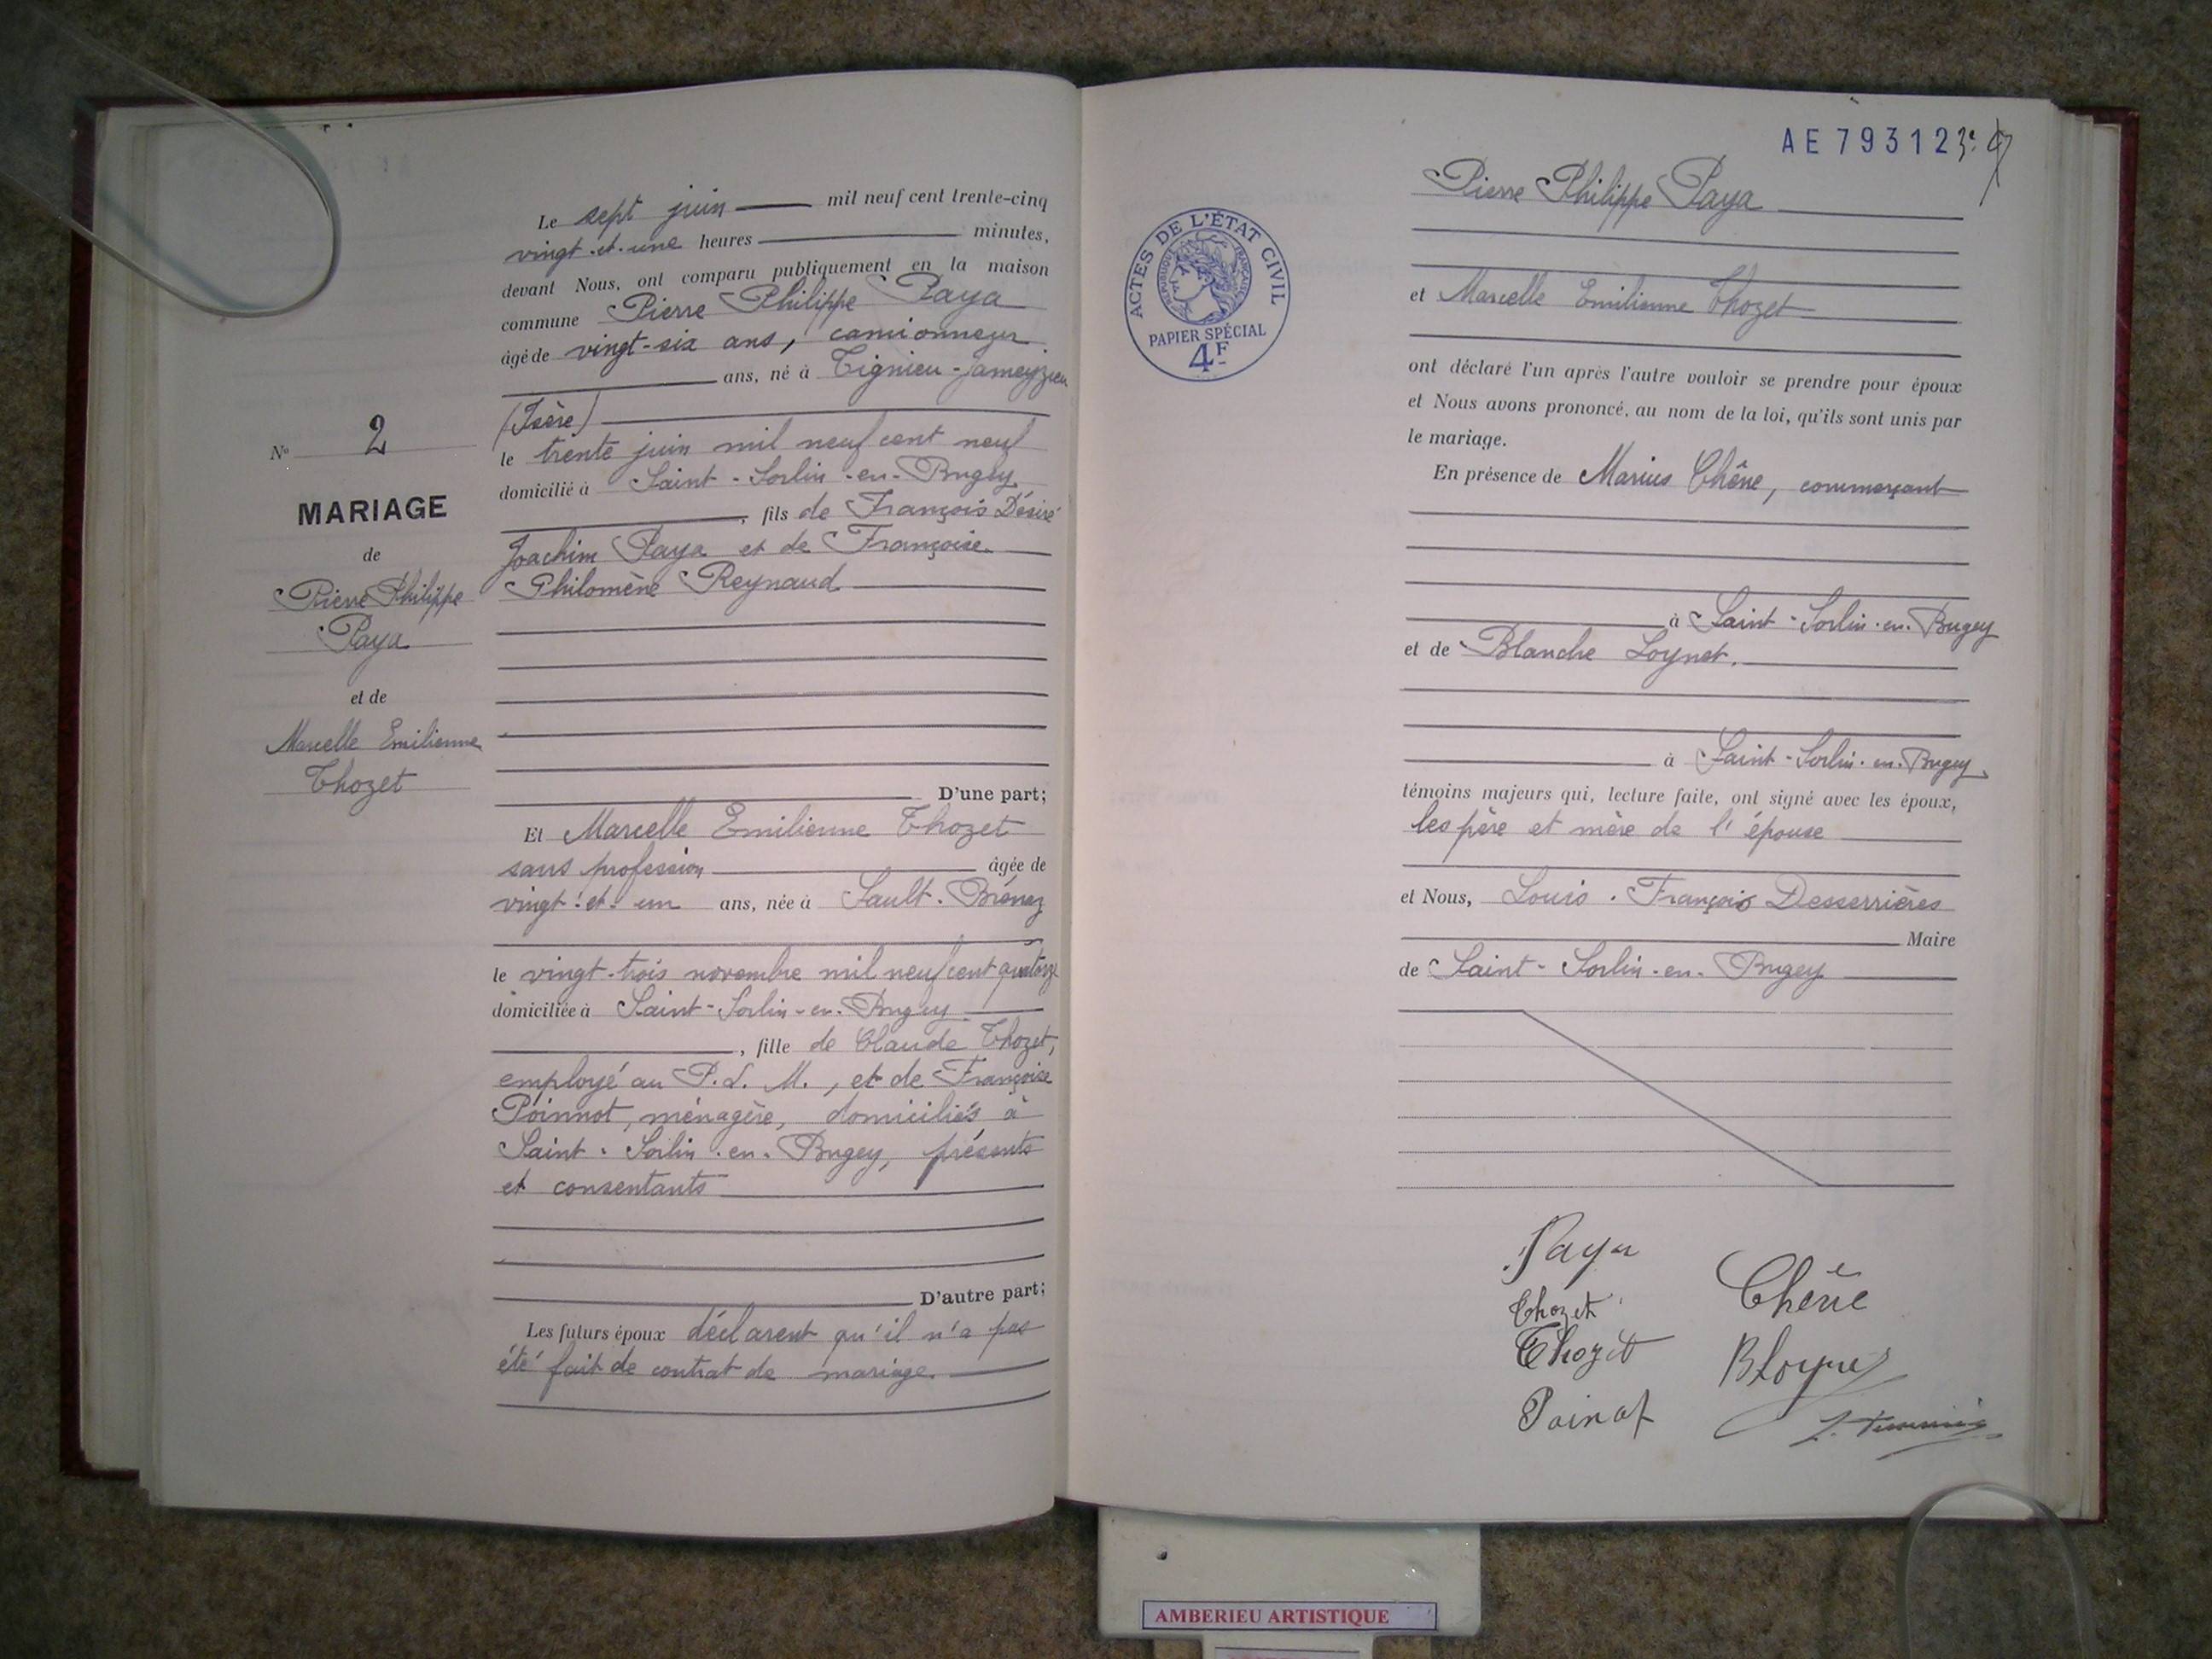 Le sept juin mil neuf cent trente-cinq
vingt-et-une heures minutes,
devant Nous, ont comparu publiquement en la maison
commune Pierre Philippe Paya
âgé de vingt-six ans, camionneur
ans, né à Tignieu-Jameyzieu
(Isère)
le trente juin mil neuf cent neuf
domicilié à Saint-Sorlin-en-Bugey
, fils de François Désiré
Joachim Paya et de Françoise
Philomène Reynaud
D'une part;
Et Marcelle Emilienne Thozet
sans profession âgée de
vingt-et-un ans, née à Sault-Brénaz
le vingt-trois novembre mil neuf cent quatorze
domiciliée à Saint-Sorlin-en-Bugey
, fille de Claude Thozet,
employé au P.L.M., et de Françoise
Poinnot, ménagère, domiciliés à
Saint-Sorlin-en-Bugey, présents
et consentants
D'autre part;
Les futurs époux déclarent qu'il n'a pas
été fait de contrat de mariage.
N° 2
MARIAGE
de
Pierre Philippe
Paya
et de
Marcelle Emilienne
Thozet
AE 79312
ACTES DE L'ÉTAT CIVIL
RÉPUBLIQUE FRANÇAISE
PAPIER SPÉCIAL
4F
Pierre Philippe Paya
et Marcelle Emilienne Thozet
ont déclaré l'un après l'autre vouloir se prendre pour époux
et Nous avons prononcé, au nom de la loi, qu'ils sont unis par
le mariage.
En présence de Marius Chêne, commerçant
à Saint-Sorlin-en-Bugey
et de Blanche Loynet,
à Saint-Sorlin-en-Bugey,
témoins majeurs qui, lecture faite, ont signé avec les époux,
les père et mère de l'épouse
et Nous, Louis-François Desserrières
Maire
de Saint-Sorlin-en-Bugey
Paya
Thozet
Thozet
Poinot
Chêne
AMBERIEU ARTISTIQUE